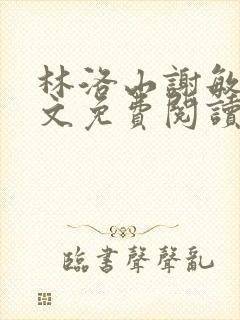 林洛山謝敏
文免費閱讀
臨書聲聲亂